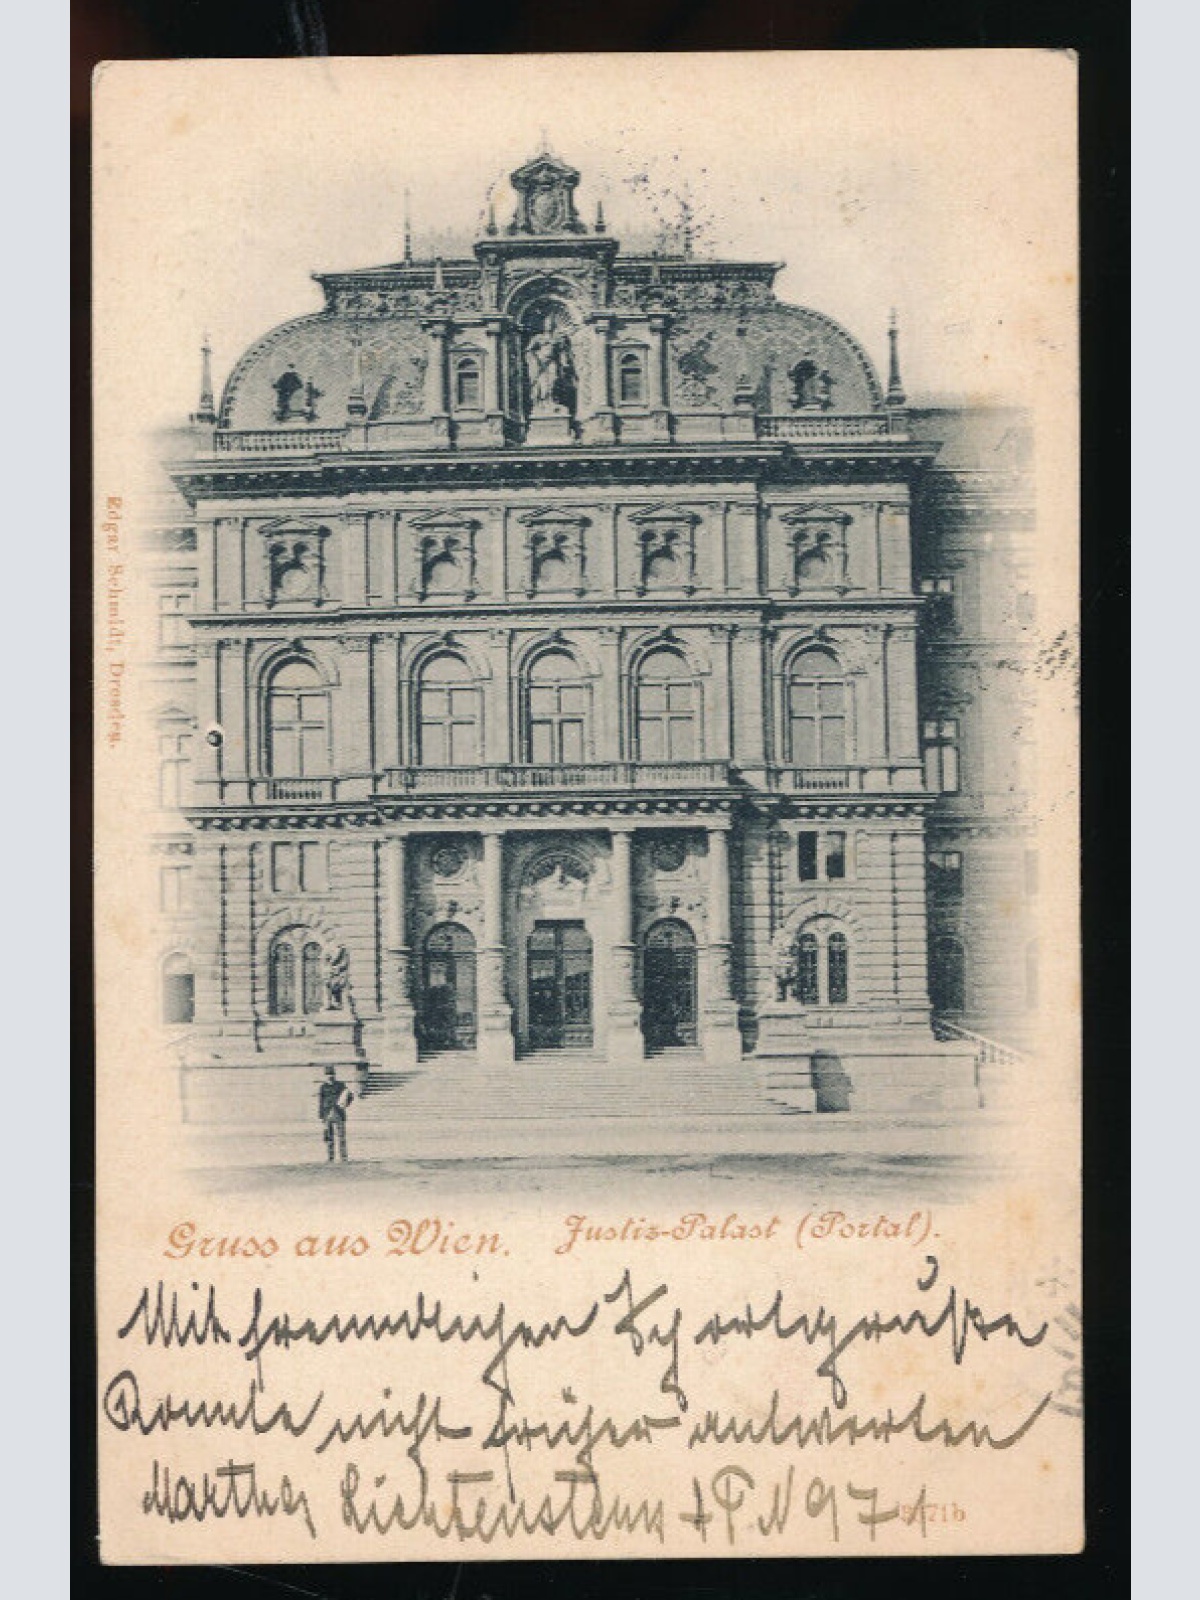 Edgar Schmidt, Dresden.
Gruss aus Wien. Justiz-Palast (Portal).
Mit freundlichen Sportgrüßen
Konnte nicht früher antworten
Martha Lichtenstern
71b